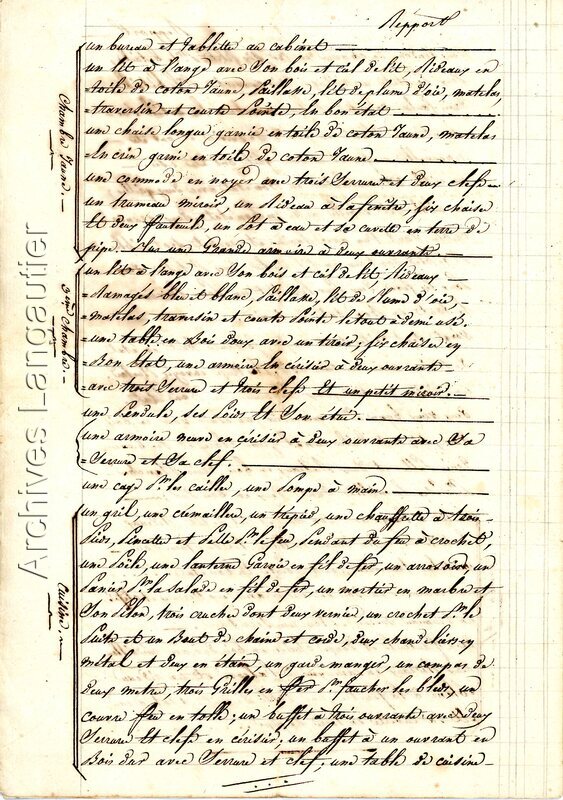 Report
un bureau et tablette au cabinet
Chambre Jaune.
un lit à l'ange avec Son bois et ciel de lit, Rideaux en
toile de coton Jaune, Paillasse, lit de plume d'oie, matelas,
=traversin et courte Pointe, En bon état
une chaise longue garnie en toile de coton Jaune, matelas
=En crin garni en toile de coton Jaune
une commode en noyer avec trois Serrure et deux clefs
un trumeau miroir, un Rideau à la fenêtre, six chaise
Et deux fauteuil, un Pot à eau et Sa cuvette en terre de
pipe. Plus une Grande armoire à deux ouvrante.
3eme Chambre.
un lit à l'ange avec Son bois et ciel de lit, Rideaux
=damagés bleu et blanc, Paillasse, lit de Plume d'oie,
=matelas, traversin et courte Pointe le tout à demi usé.
=une table en Bois doux avec un tiroir; six chaises en
=Bon Etat, une armoire En cérisier à deux ouvrante
=avec trois Serrure et trois clefs Et un petit miroir.
une Pendule, ses Poids Et Son étui.
une armoire neuve en cérisier à deux ouvrante avec Sa
=Serrure et Sa clef.
une cage Pr. les cailles, une Pompe à main.
Cuisine.
un gril, une cremaillere, un trepied, une chauffrette à trois
Pieds, Pincette et Pelle Pr. le feu, Pendant du feu à crochet,
une Poële, une lanterne Garnie en fil de fer, un arrosoire, un
Panier Pr. la salade en fil de fer, un mortier en marbre et
Son Pilon, trois cruches dont deux vernie, un crochet Pr. le
Puits et un Bout de chaine et corde, deux chandeliers en
métal et deux en étain, un garde manger, un compas de
deux metre, trois Grilles en fer Pr. faucher les bleds, un
couvre feu en tolle; un buffet à trois ouvrante avec deux
Serrure Et clefs en cérisier, un buffet à un ouvrant en
Bois dur avec Serrure et clef, une table de cuisine
Archives Langautier